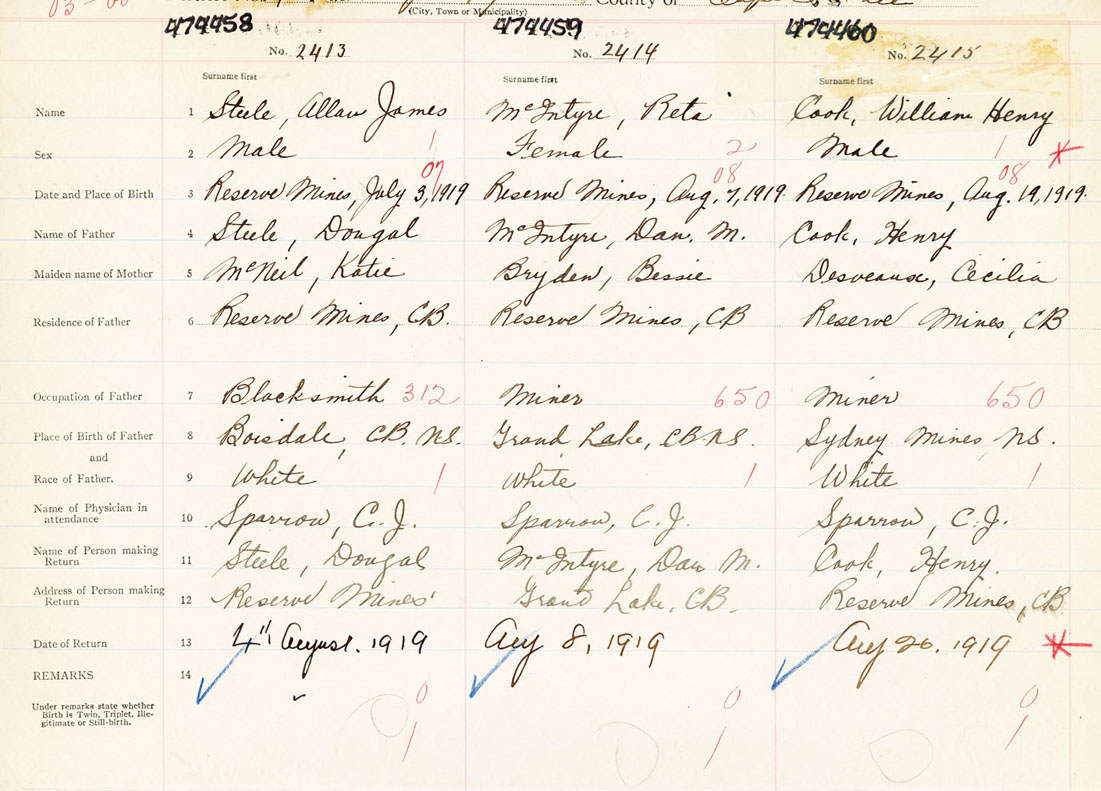 03-00 County of
(City, Town or Municipality)
474458 474459 474460
No. 2413 No. 2414 No. 2415
Surname first Surname first Surname first
Name 1 Steele, Allan James McIntyre, Reta Cook, William Henry
Sex 2 Male 1 Female 2 Male 1
07 08 08
Date and Place of Birth 3 Reserve Mines, July 3, 1919 Reserve Mines, Aug. 7, 1919. Reserve Mines, Aug. 19, 1919.
Name of Father 4 Steele, Dougal McIntyre, Dan. M. Cook, Henry
Maiden name of Mother 5 McNeil, Katie Bryden, Bessie Desveaux, Cecilia
Residence of Father 6 Reserve Mines, CB. Reserve Mines, CB Reserve Mines, CB
Occupation of Father 7 Blacksmith 312 Miner 650 Miner 650
Place of Birth of Father 8 Boisdale, CB. NS. Grand Lake, CB. NS. Sydney Mines, NS.
and
Race of Father. 9 White 1 White 1 White 1
Name of Physician in
attendance 10 Sparrow, C. J. Sparrow, C. J. Sparrow, C. J.
Name of Person making
Return 11 Steele, Dougal McIntyre, Dan M. Cook, Henry.
Address of Person making
Return 12 Reserve Mines Grand Lake, CB. Reserve Mines, CB
Date of Return 13 4th August. 1919 Aug 8, 1919 Aug 20. 1919
REMARKS 14
Under remarks state whether
Birth is Twin, Triplet, Ille-
gitimate or Still-birth.
0 0 0
1 1 1